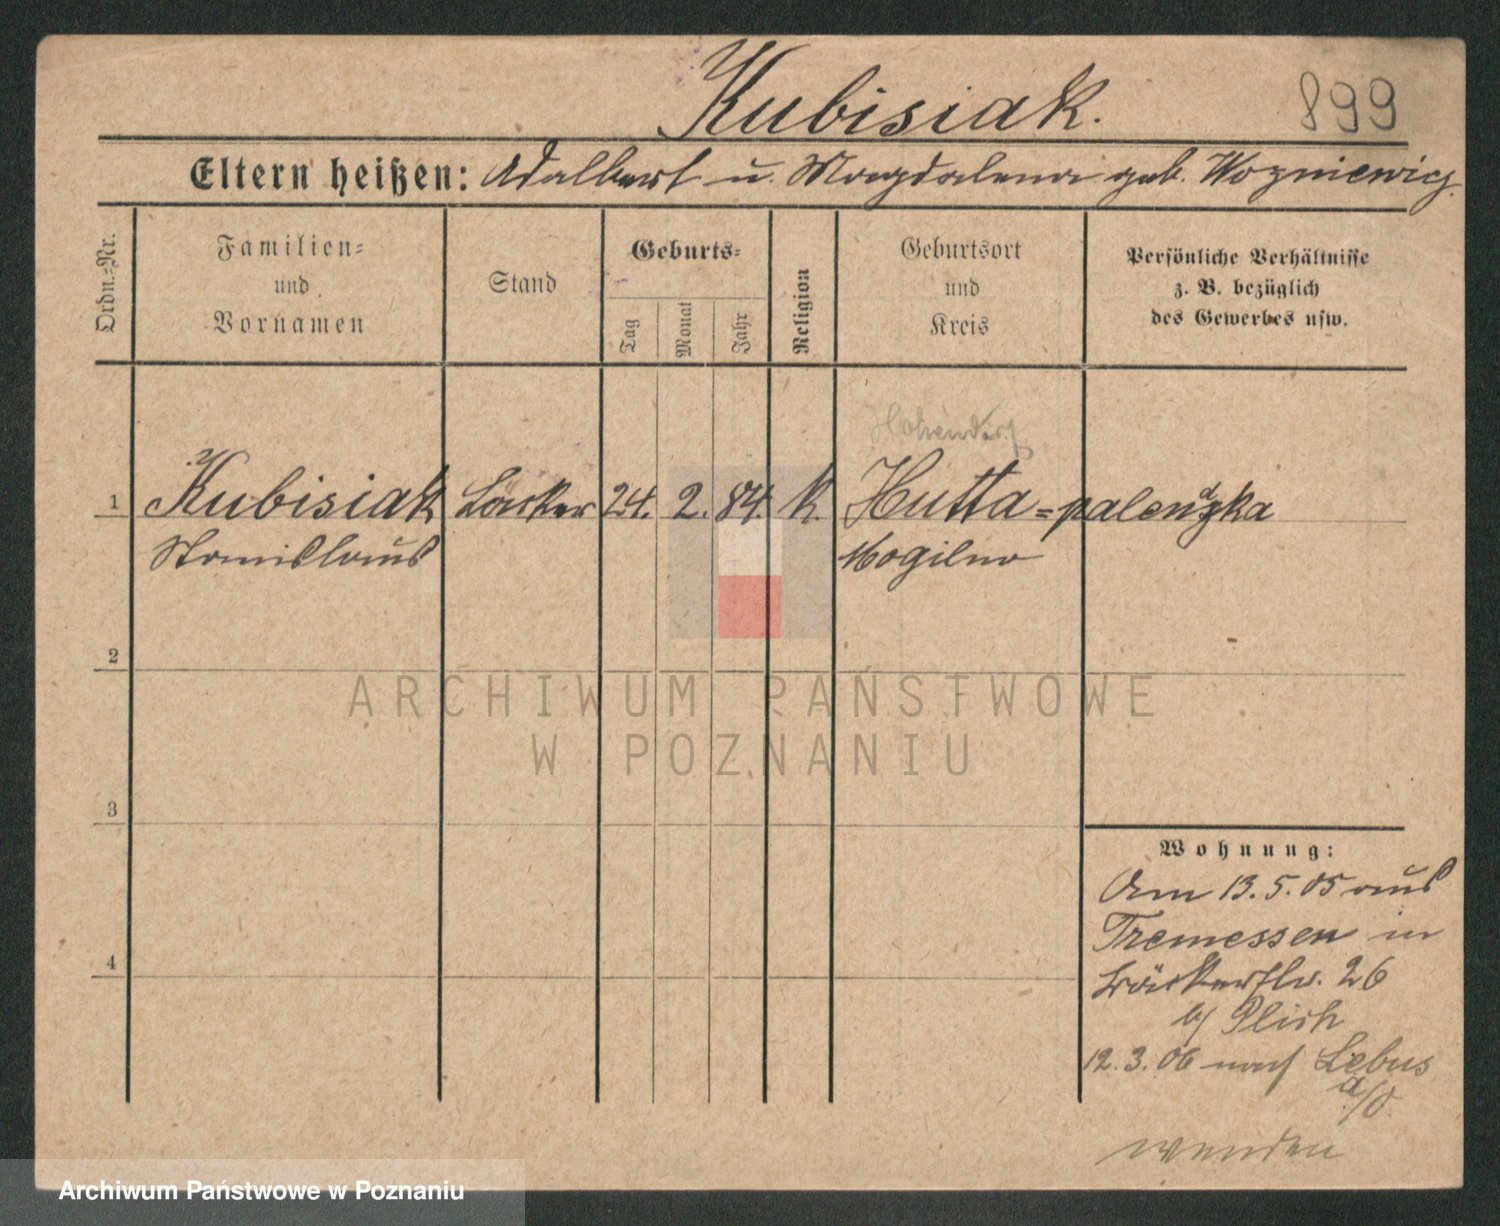 Kubisiak.
899
Eltern heißen: Adalbert u. Magdalena geb. Wozniewicz.
Ordn.-Nr.
Familien-
und
Vornamen
Stand
Geburts-
Tag
Monat
Jahr
Religion
Geburtsort
und
Kreis
Persönliche Verhältnisse
z. B. bezüglich
des Gewerbes usw.
Hohendorf
1 Kubisiak Bäcker 24. 2. 84. k. Hutta-palendzka
Stanislaus Mogilno
2
ARCHIWUM PAŃSTWOWE
W POZNANIU
3
Wohnung:
Am 13.5.05 aus
Tremessen in
Bäckerstr. 26
b/
12.3.06 nach Lebus
a/O
4
wenden
Archiwum Państwowe w Poznaniu